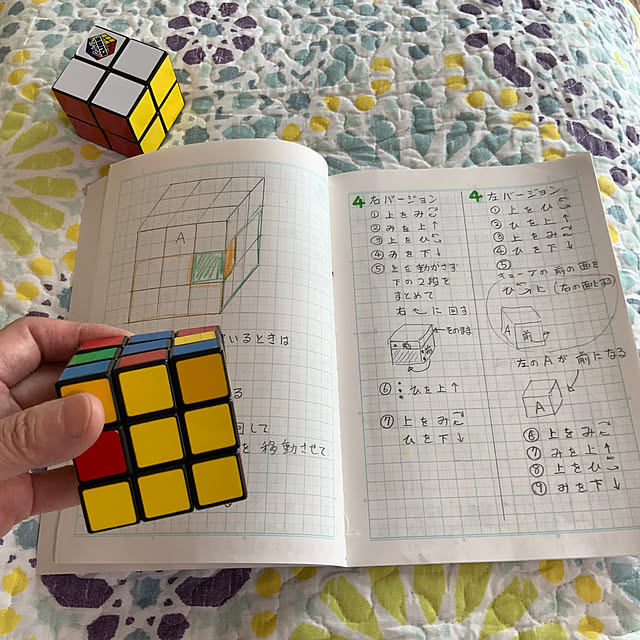 A
いるときは
る
回して
を 移動させて
4 右バージョン
① 上をみ
② みを上↑
③ 上をひ
④ みを下↓
⑤ 上を動かさず
下の2段を
まとめて
右へに回す
←そのまま
前
⑥ ひを上↑
⑦ 上をみ
ひを下↓
4 左バージョン
① 上をひ
② ひを上↑
③ 上をみ
④ ひを下↓
⑤
の前の面を
ひ 上 (右の面にする)
A 前
左のAが前になる
A
⑥ 上をみ
⑦ みを上↑
⑧ 上をひ
⑨ みを下↓